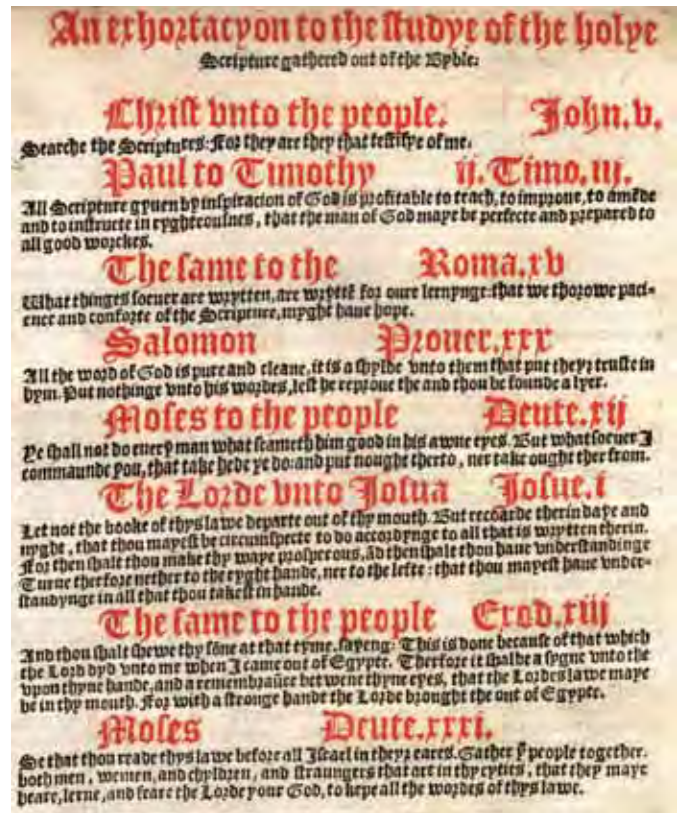 An exhortacyon to the studye of the holye
Scripture gathered out of the Byble.
Christ vnto the people. John.v.
Searche the Scriptures: For they are they that testifye of me.
Paul to Timothy ii. Timo. iij.
All Scripture gyuen by inspiracion of God is profitable to teach, to improue, to amēde
and to instructe in ryghteousnes, that the man of God maye be perfecte and prepared to
all good worckes.
The same to the Roma.xv
What thinges soeuer are wrytten, are wryttē for oure lernynge: that we thorowe paci-
ence and conforte of the Scripture, myght haue hope.
Salomon Prouer.xxx
All the word of God is pure and cleane, it is a shylde vnto them that put theyr truste in
hym. Put nothinge vnto his wordes, lest he reproue the and thou be founde a lyer.
Moses to the people Deute.xij
Ye shall not do euery man what seameth him good in his awne eyes. But what soeuer I
commaunde you, that take hede ye do: and put nought therto, ner take ought ther from.
The Lorde vnto Josua Josue.i
Let not the booke of thys lawe departe out of thy mouth. But recoarde therin daye and
nyght, that thou mayest be circumspecte to do accordynge to all that is wrytten therin.
For then shalt thou make thy waye prosperous, ād then shalt thou haue vnderstandinge
Turne therfore nether to the ryght hande, ner to the lefte: that thou mayest haue vnder-
standynge in all that thou takest in hande.
The same to the people Exod.xiij
And thou shalt shewe thy sōne at that tyme, sayeng: This is done because of that which
the Lord dyd vnto me when I came out of Egypte. Therfore it shalbe a sygne vnto the
vpon thyne hande, and a remembraūce betwene thyne eyes, that the Lordes lawe maye
be in thy mouth. For with a stronge hande the Lorde brought the out of Egypte.
Moses Deute.xxxi.
Se that thou reade thys lawe before all Israel in theyr eares. Gather yͤ people together.
both men, wemen, and chyldren, and straungers that are in thy cyties, that they maye
heare, lerne, and feare the Lorde your God, to kepe all the wordes of thys lawe.